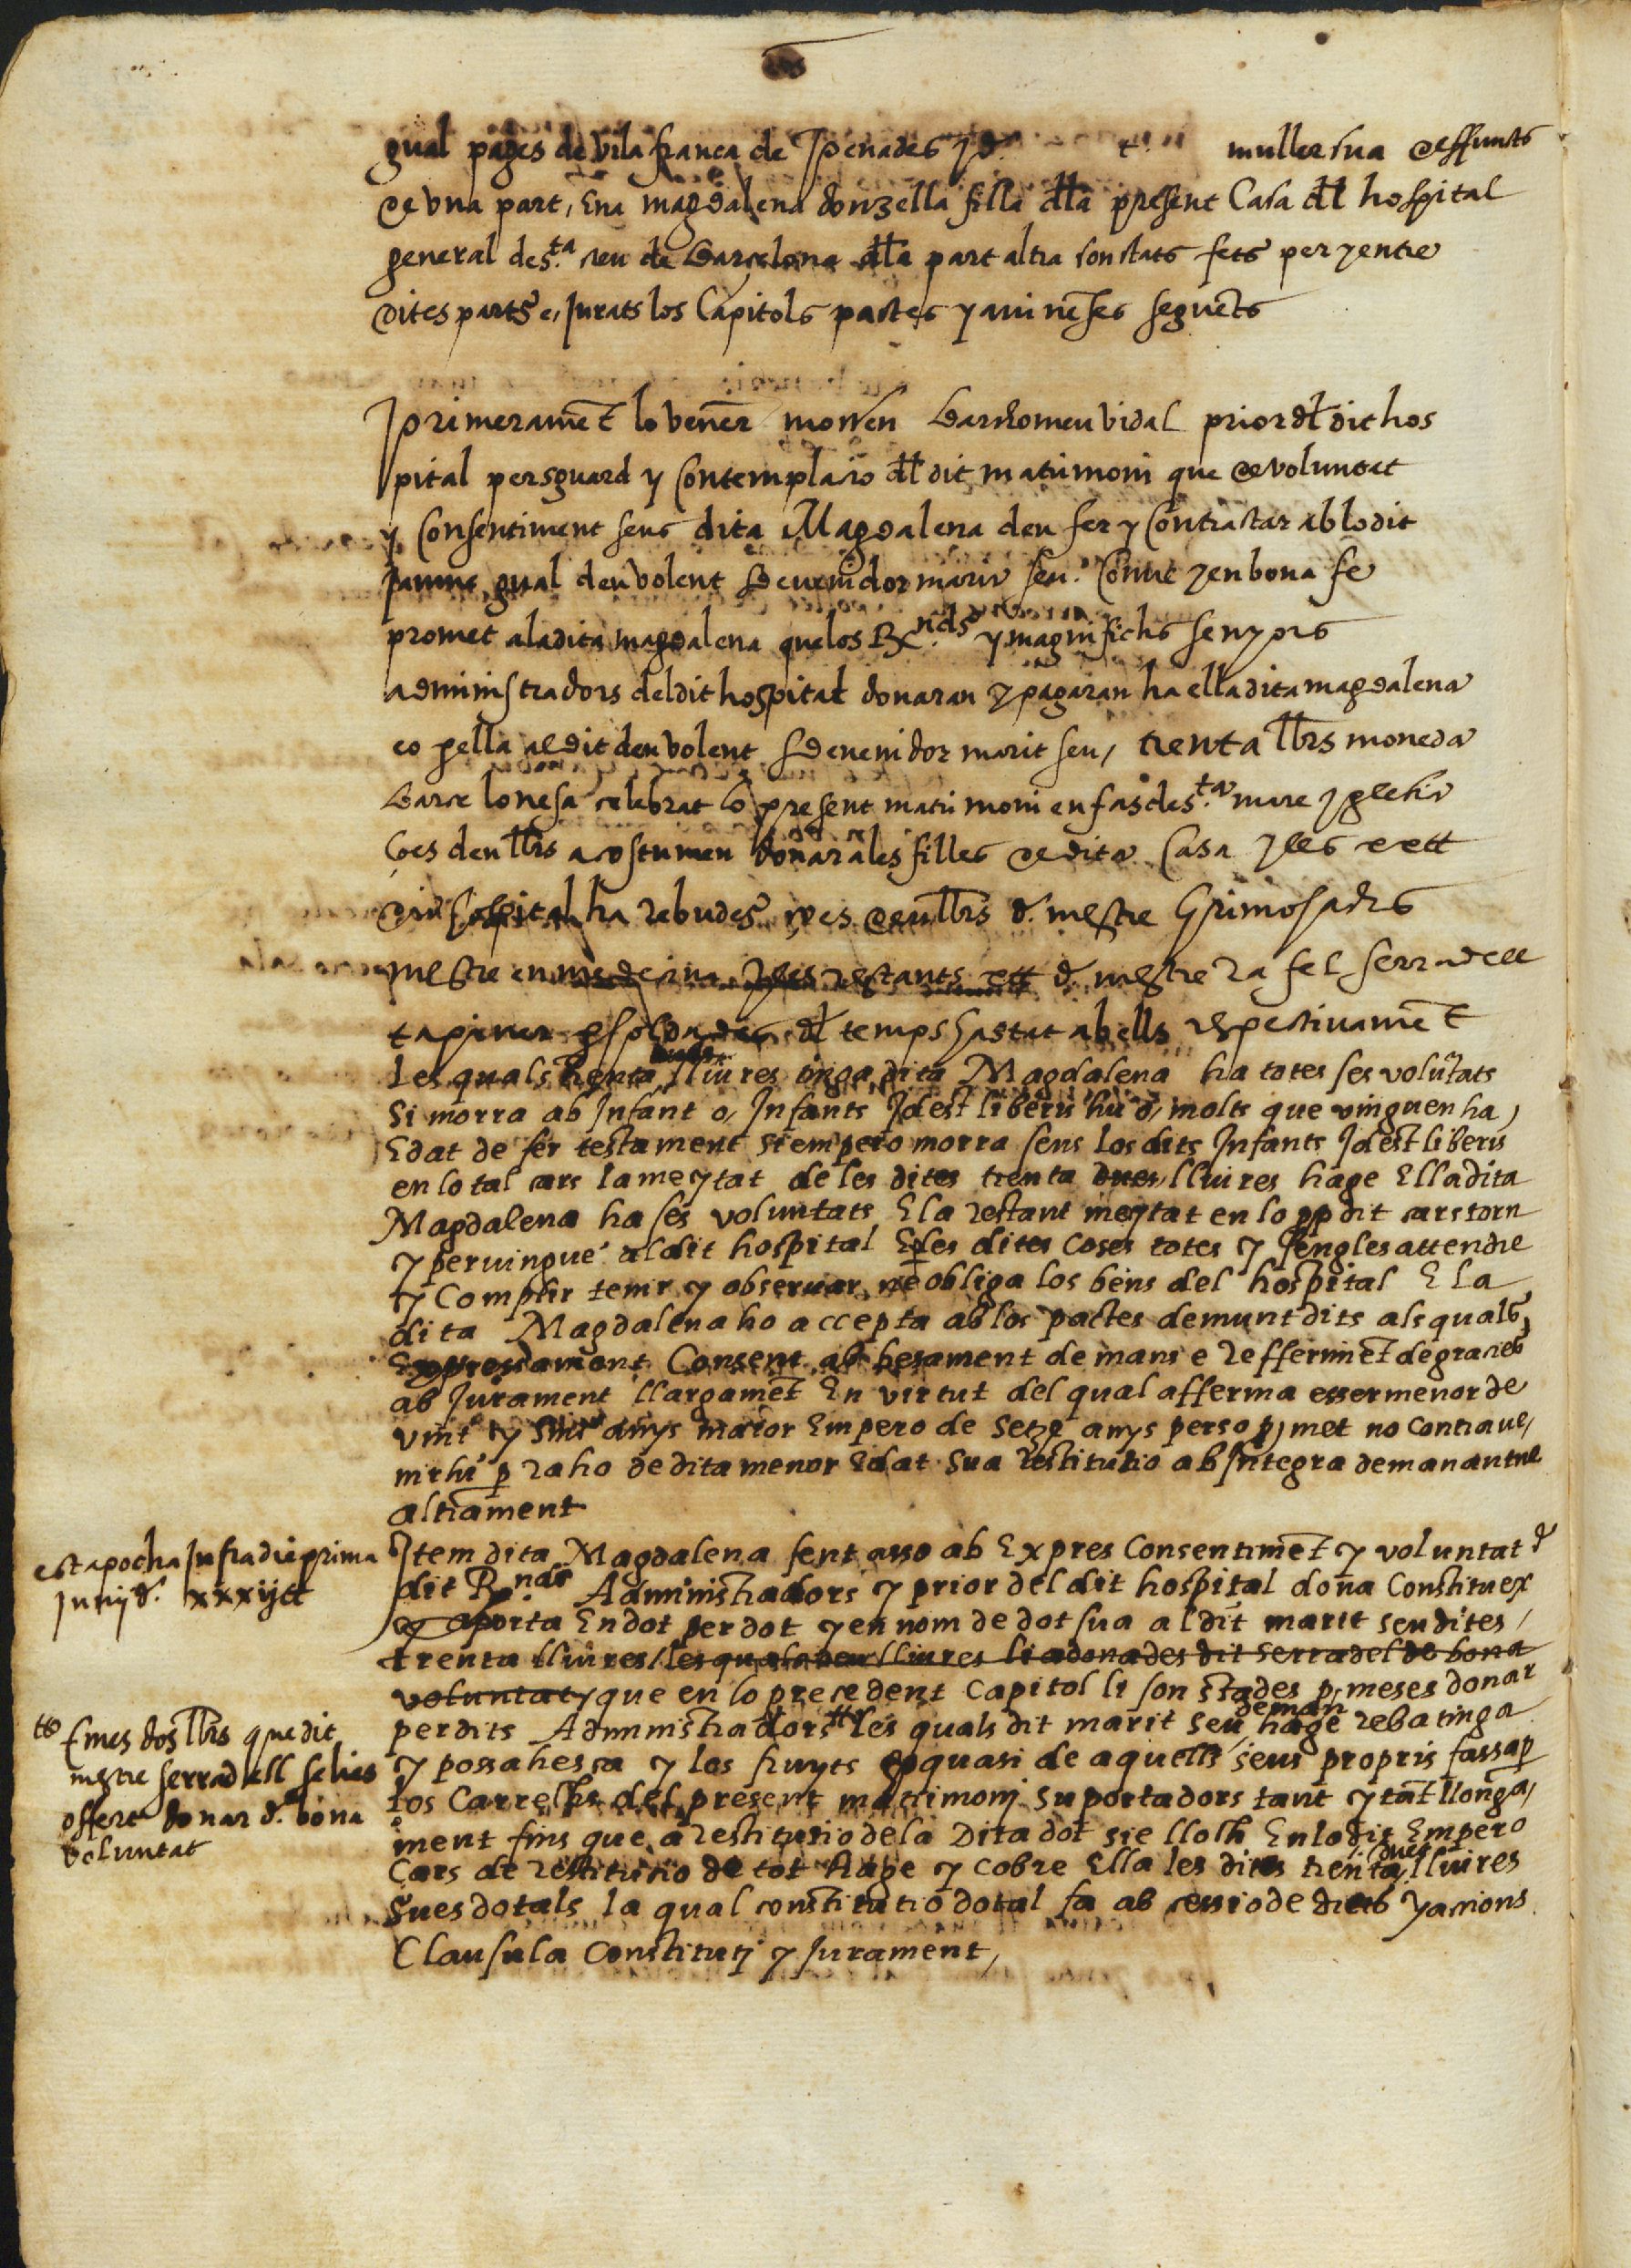 gual pages de Vilafranca de Penades y d. muller sua deffuncts
de una part, Ena magdalena donzella filla dla present Casa dl hospital
general de s.ta creu de Barcelona dla part altra son stats fets per y entre
dites parts e, Jurats los Capitols pactes y avinēses seguēts
primeramēt lo vener mossen Barthomeu Vidal prior dl dit hos
pital per sguard y Contemplatio dl dit matrimoni que de voluntat
y Consentiment seus dita Magdalena deu fer y Contractar ab lo dit
Jaume gual deu volent Sdevenidor marit seu. Conve y en bona fe
promet a la dita magdalena que los R.nds y magnifichs senyors
administradors del dit hospital donaran y pagaran ha ella dita magdalena
eo p ella al dit deu volent Sdevenidor marit seu, trenta llrs moneda
Barcelonesa celebrat lo present matrimoni en fas de s.ta mare yglesia
ço es deu llrs acostumen donar a les filles de dita Casa y les
dit hospital ha rebudes ço es deu llrs d. mestre Grimosachs
mestre en medecina y les restants d. mestre rafel serradell
tapiner p soldades dl temps ha stat ab ells respectivamēt
Les quals trenta dues lliures tinga dita Magdalena ha totes ses volūtats
si morra ab Infant o, Infants Id est liberis hu o, molts que vinguen ha,
Edat de fer testament si empero morra sens los dits Infants Id est liberis
en lo tal cars la meytat de les dites trenta dues lliures hage Ella dita
Magdalena ha ses voluntats E la restant meytat en lo pp dit cars torn
y pervingue al dit hospital E p les dites coses totes y sengles attendre
y Complir tenir y observar ne obliga los bens del hospital E la
dita Magdalena ho accepta ab los pactes demunt dits als quals,
Expressament Consent ab besament de mans e reffermēt de gracies
ab Jurament llargamēt En virtut del qual afferma esser menor de
vint y sinc anys maior Empero de setze anys perso p,met no contrave,
nir hi p raho de dita menor Edat sua restitutio ab Integra demanant ne
altrament
Item dita Magdalena fent asso ab Expres Consentimēt y voluntat d
dit R.nds Administradors y prior del dit hospital dona Constituex
y aporta En dot per dot y en nom de dot sua al dit marit seu dites,
trenta lliures les quals deu lliures li a donades dit serradel de bona
voluntat y que en lo precedent Capitol li son stades p,meses donar
per dits Administradors les quals dit marit seu deman, hage reba tinga
y possahesca y los fruyts eo quasi de aquells seus propris fassa p
los Carrechs del present matrimoni suportadors tant y tāt llonga,
ment fins que a restitutio de la Dita dot sie lloch En lo dit Empero
Cars de restitutio de tot hage y cobre Ella les dites trenta dues lliures
Sues dotals la qual constitutio dotal fa ab cessio de drets y actions
Clausula Constituti y Jurament,
est apocha Infra die prima
Junij d. xxxijtt
E mes dos llrs que dit
mestre serradell se li es
offert donar d. bona
voluntat